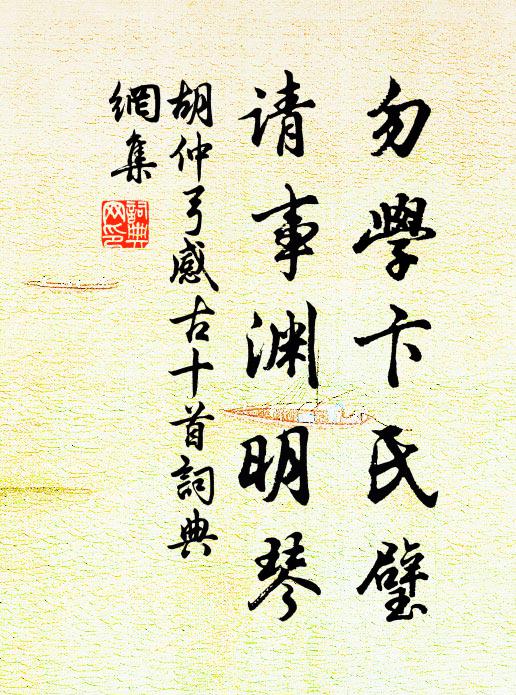 勿學卞氏璧
请事渊明琴
胡仲弓感古十首詞典
網集
詞典网印